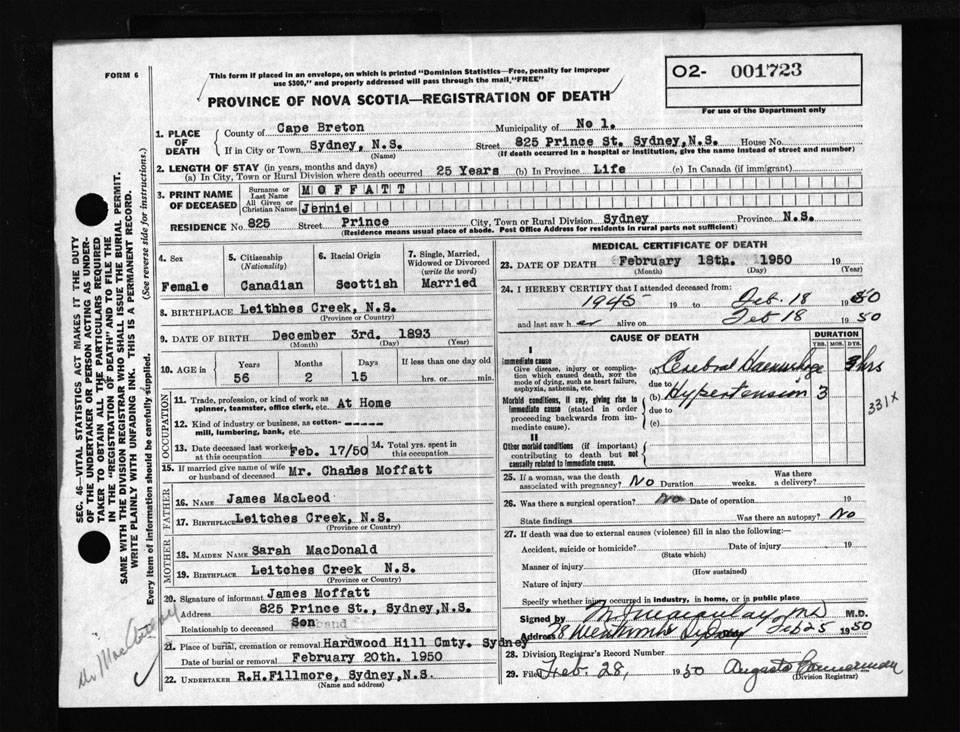 FORM 6
This form if placed in an envelope, on which is printed "Dominion Statistics—Free, penalty for improper
use $300," and properly addressed will pass through the mail, "FREE"
PROVINCE OF NOVA SCOTIA—REGISTRATION OF DEATH
O2- 001723
For use of the Department only
1. PLACE OF DEATH
County of Cape Breton Municipality of No 1.
If in City or Town Sydney, N.S. Street 825 Prince St. Sydney, N.S. House No.
(Name) (If death occurred in a hospital or institution, give the name instead of street and number)
2. LENGTH OF STAY (in years, months and days)
(a) In City, Town or Rural Division where death occurred 25 Years (b) In Province Life (c) In Canada (if immigrant)
3. PRINT NAME OF DECEASED
Surname or Last Name MOFFATT
All Given or Christian Names Jennie
RESIDENCE No. 825 Street Prince City, Town or Rural Division Sydney Province N.S.
(Residence means usual place of abode. Post Office Address for residents in rural parts not sufficient)
4. Sex
Female
5. Citizenship (Nationality)
Canadian
6. Racial Origin
Scottish
7. Single, Married, Widowed or Divorced (write the word)
Married
8. BIRTHPLACE Leithhes Creek, N.S.
(Province or Country)
9. DATE OF BIRTH December 3rd. 1893
(Month) (Day) (Year)
10. AGE in Years Months Days If less than one day old
56 2 15 hrs. or min.
OCCUPATION
11. Trade, profession, or kind of work as
spinner, teamster, office clerk, etc. At Home
12. Kind of industry or business, as cotton-
mill, lumbering, bank, etc. -----
13. Date deceased last worked at this occupation Feb. 17/50 14. Total yrs. spent in this occupation
15. If married give name of wife or husband of deceased Mr. Chanes Moffatt
FATHER
16. NAME James MacLeod
17. BIRTHPLACE Leitches Creek, N.S.
(Province or Country)
MOTHER
18. MAIDEN NAME Sarah MacDonald
19. BIRTHPLACE Leitches Creek N.S.
(Province or Country)
20. Signature of informant James Moffatt
Address 825 Prince St., Sydney, N.S.
Relationship to deceased Son
21. Place of burial, cremation or removal Hardwood Hill Cmty. Sydney
Date of burial or removal February 20th. 1950
22. UNDERTAKER R.H.Fillmore, Sydney, N.S.
(Name and address)
MEDICAL CERTIFICATE OF DEATH
23. DATE OF DEATH February 18th. 1950 19
(Month) (Day) (Year)
24. I HEREBY CERTIFY that I attended deceased from:
1945 19 to Feb. 18 1950
and last saw her alive on Feb 18 1950
CAUSE OF DEATH DURATION
YRS. MOS. DYS.
I
Immediate cause
Give disease, injury or complication which caused death, not the mode of dying, such as heart failure, asphyxia, asthenia, etc.
(a) Cerebral Haemorrhage 3 hrs
due to
Morbid conditions, if any, giving rise to immediate cause (stated in order proceeding backwards from immediate cause).
(b) Hypertension 3
due to
(c)
331X
II
Other morbid conditions (if important) contributing to death but not causally related to immediate cause.
25. If a woman, was the death associated with pregnancy? No Duration weeks. Was there a delivery?
26. Was there a surgical operation? No Date of operation 19
State findings Was there an autopsy? No
27. If death was due to external causes (violence) fill in also the following:—
Accident, suicide or homicide? Date of injury 19
(State which)
Manner of injury
(How sustained)
Nature of injury
Specify whether injury occurred in industry, in home, or in public place
Signed by M.D.
Address 78 Sydney Feb 25 1950
28. Division Registrar's Record Number
29. Filed Feb. 28, 1950
(Division Registrar)
SEC. 46—VITAL STATISTICS ACT MAKES IT THE DUTY
OF THE UNDERTAKER OR PERSON ACTING AS UNDER-
TAKER TO OBTAIN ALL THE PARTICULARS REQUIRED
IN THE "REGISTRATION OF DEATH" AND TO FILE THE
SAME WITH THE DIVISION REGISTRAR WHO SHALL ISSUE THE BURIAL PERMIT.
WRITE PLAINLY WITH UNFADING INK. THIS IS A PERMANENT RECORD.
Every item of information should be carefully supplied. (See reverse side for instructions.)